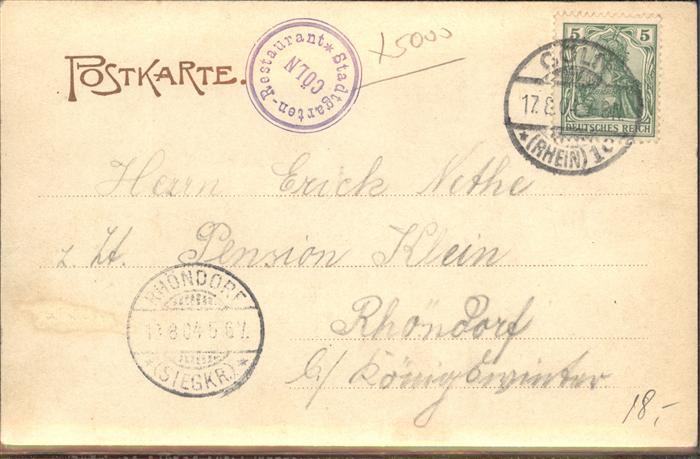 POSTKARTE.
Stadtgarten-Restaurant * CÖLN
x5000
5 5
DEUTSCHES REICH
CÖLN
17.8.0
*(RHEIN)10
Herrn Erick Nethe
z. Zt. Pension Klein
Rhöndorf
b/ Königswinter
RHÖNDORF
8 04 5-6 V.
*(SIEGKR.)*
18,-